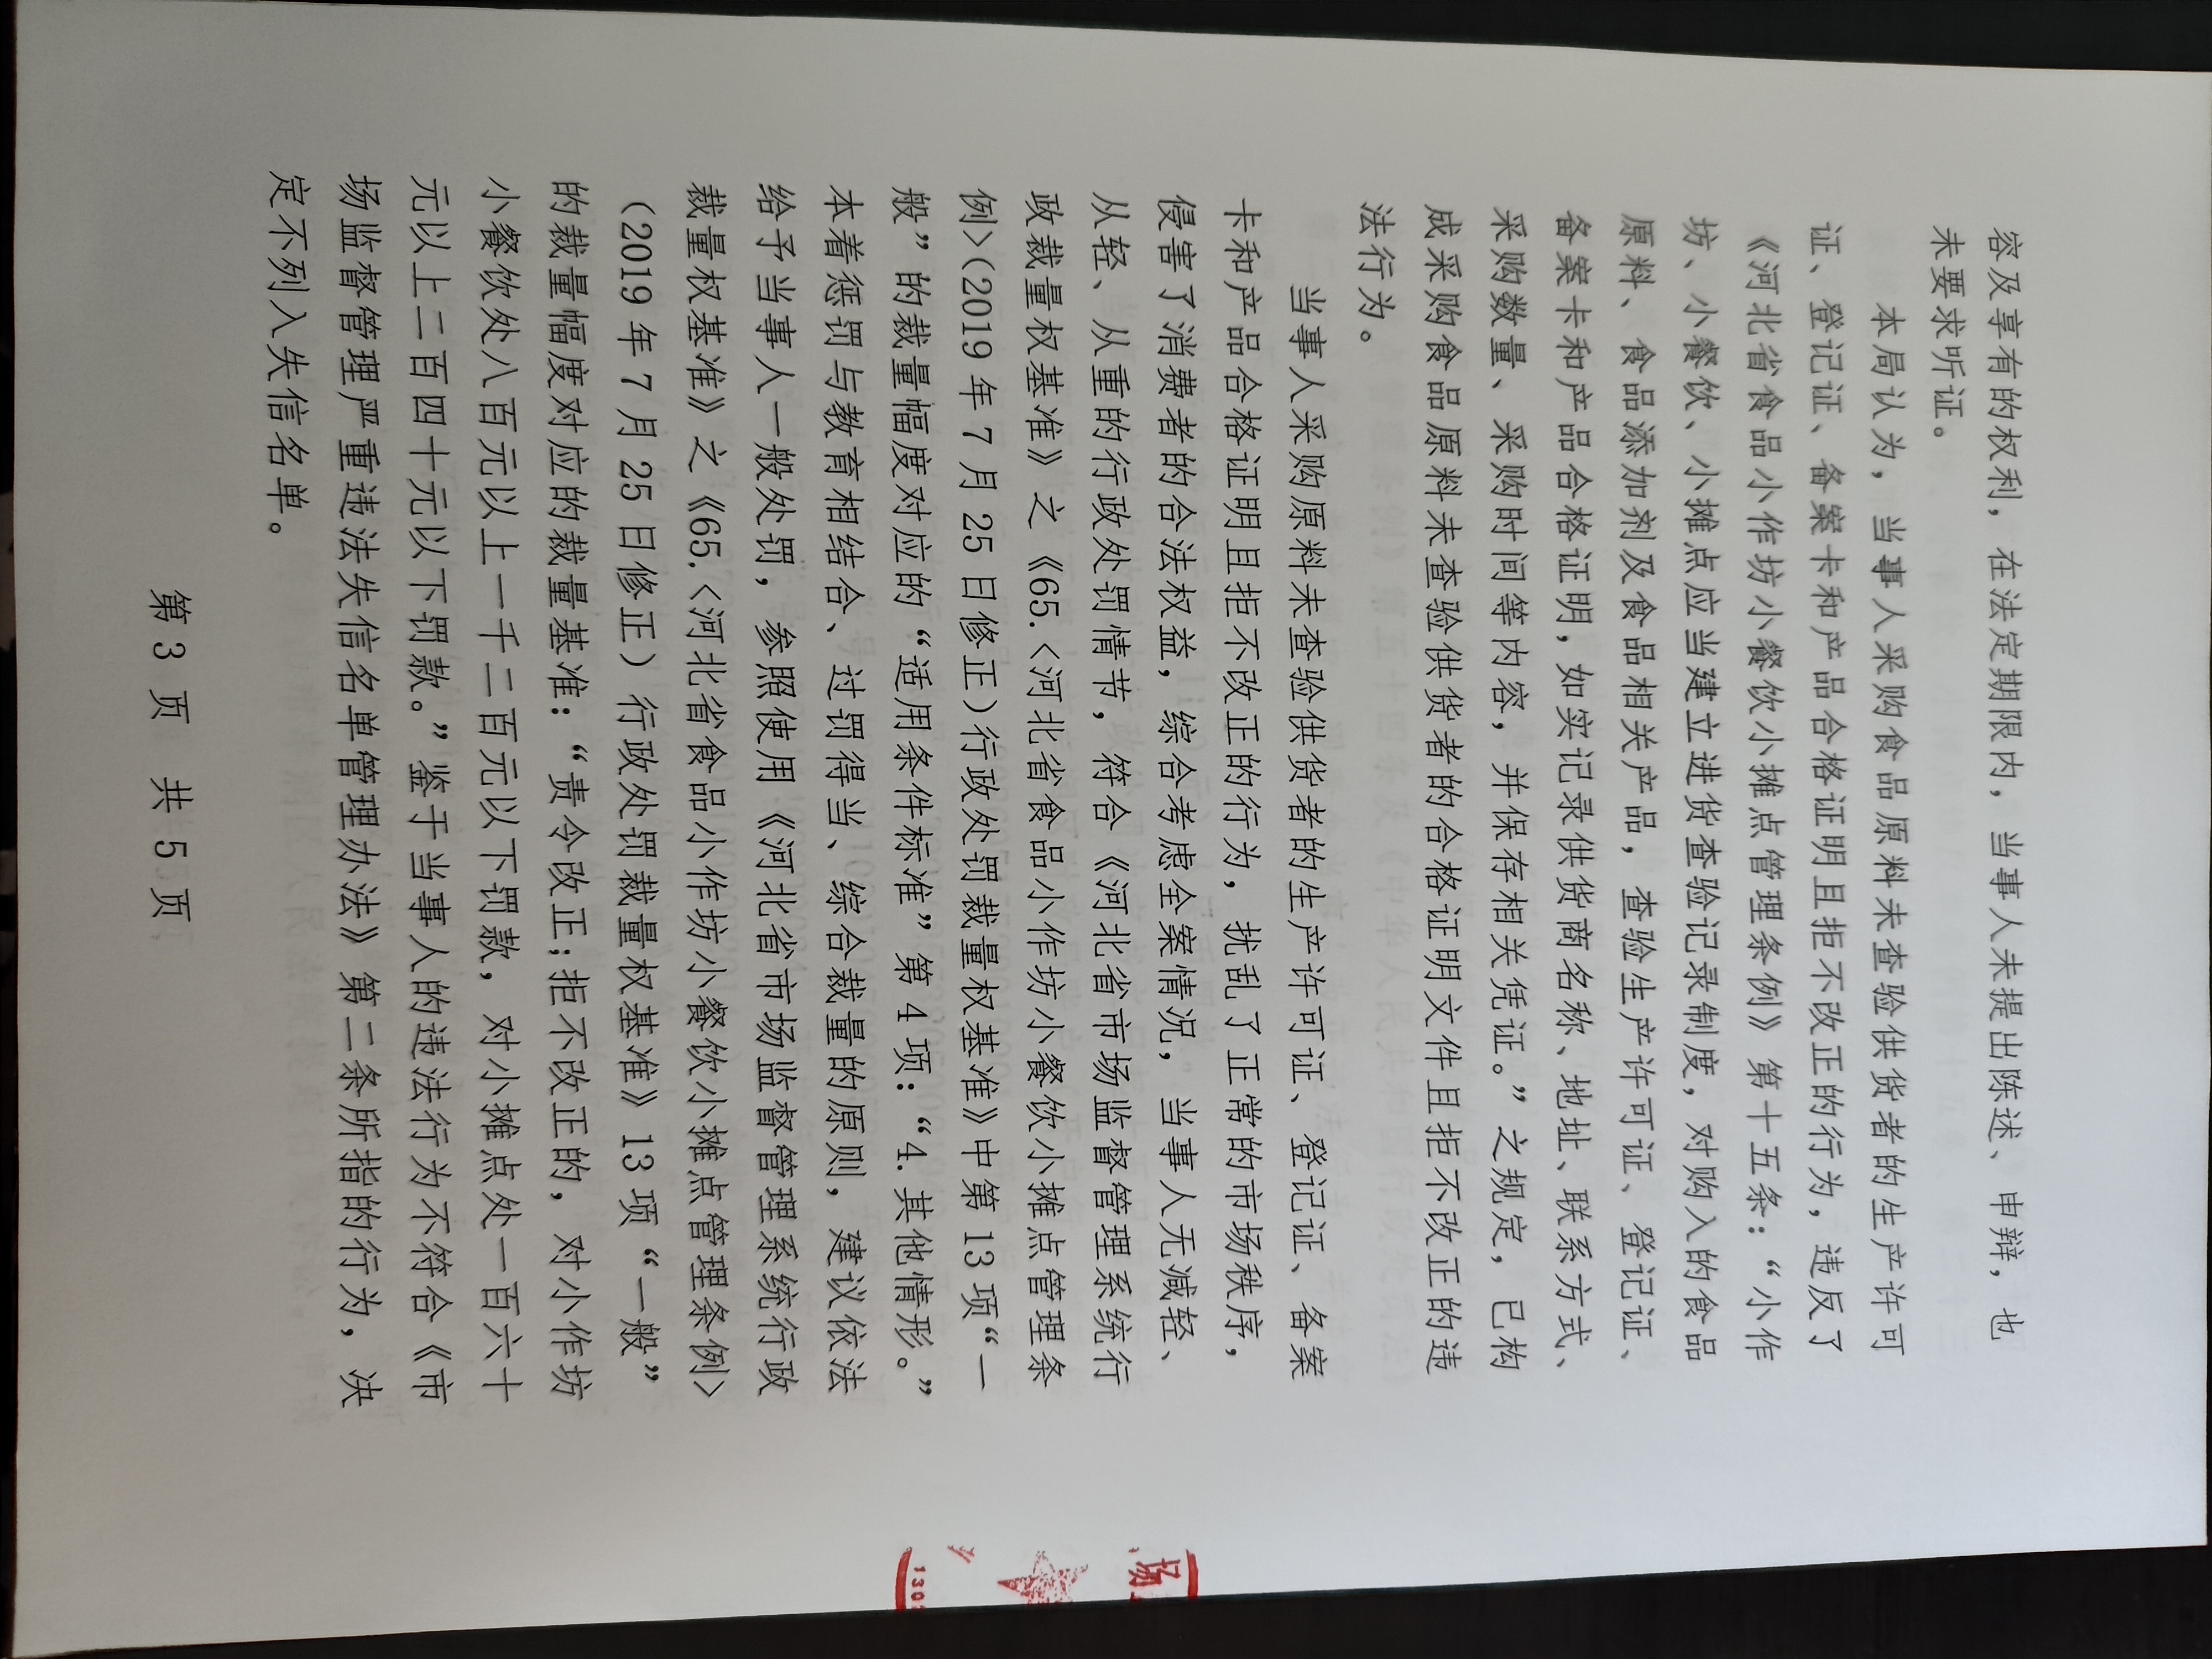 容及享有的权利，在法定期限内，当事人未提出陈述、申辩，也
未要求听证。
本局认为，当事人采购食品原料未查验供货者的生产许可
证、登记证、备案卡和产品合格证明且拒不改正的行为，违反了
《河北省食品小作坊小餐饮小摊点管理条例》第十五条：“小作
坊、小餐饮、小摊点应当建立进货查验记录制度，对购入的食品
原料、食品添加剂及食品相关产品，查验生产许可证、登记证、
备案卡和产品合格证明，如实记录供货商名称、地址、联系方式、
采购数量、采购时间等内容，并保存相关凭证。”之规定，已构
成采购食品原料未查验供货者的合格证明文件且拒不改正的违
法行为。
当事人采购原料未查验供货者的生产许可证、登记证、备案
卡和产品合格证明且拒不改正的行为，扰乱了正常的市场秩序，
侵害了消费者的合法权益，综合考虑全案情况，当事人无减轻、
从轻、从重的行政处罚情节，符合《河北省市场监督管理系统行
政裁量权基准》之《65.〈河北省食品小作坊小餐饮小摊点管理条
例〉(2019年7月25日修正)行政处罚裁量权基准》中第13项“一
般”的裁量幅度对应的“适用条件标准”第4项：“4.其他情形。”
本着惩罚与教育相结合、过罚得当、综合裁量的原则，建议依法
给予当事人一般处罚，参照使用《河北省市场监督管理系统行政
裁量权基准》之《65.〈河北省食品小作坊小餐饮小摊点管理条例〉
（2019年7月25日修正）行政处罚裁量权基准》13项“一般”
的裁量幅度对应的裁量基准：“责令改正；拒不改正的，对小作坊
小餐饮处八百元以上一千二百元以下罚款，对小摊点处一百六十
元以上二百四十元以下罚款。”鉴于当事人的违法行为不符合《市
场监督管理严重违法失信名单管理办法》第二条所指的行为，决
定不列入失信名单。
第3页 共5页
场
130